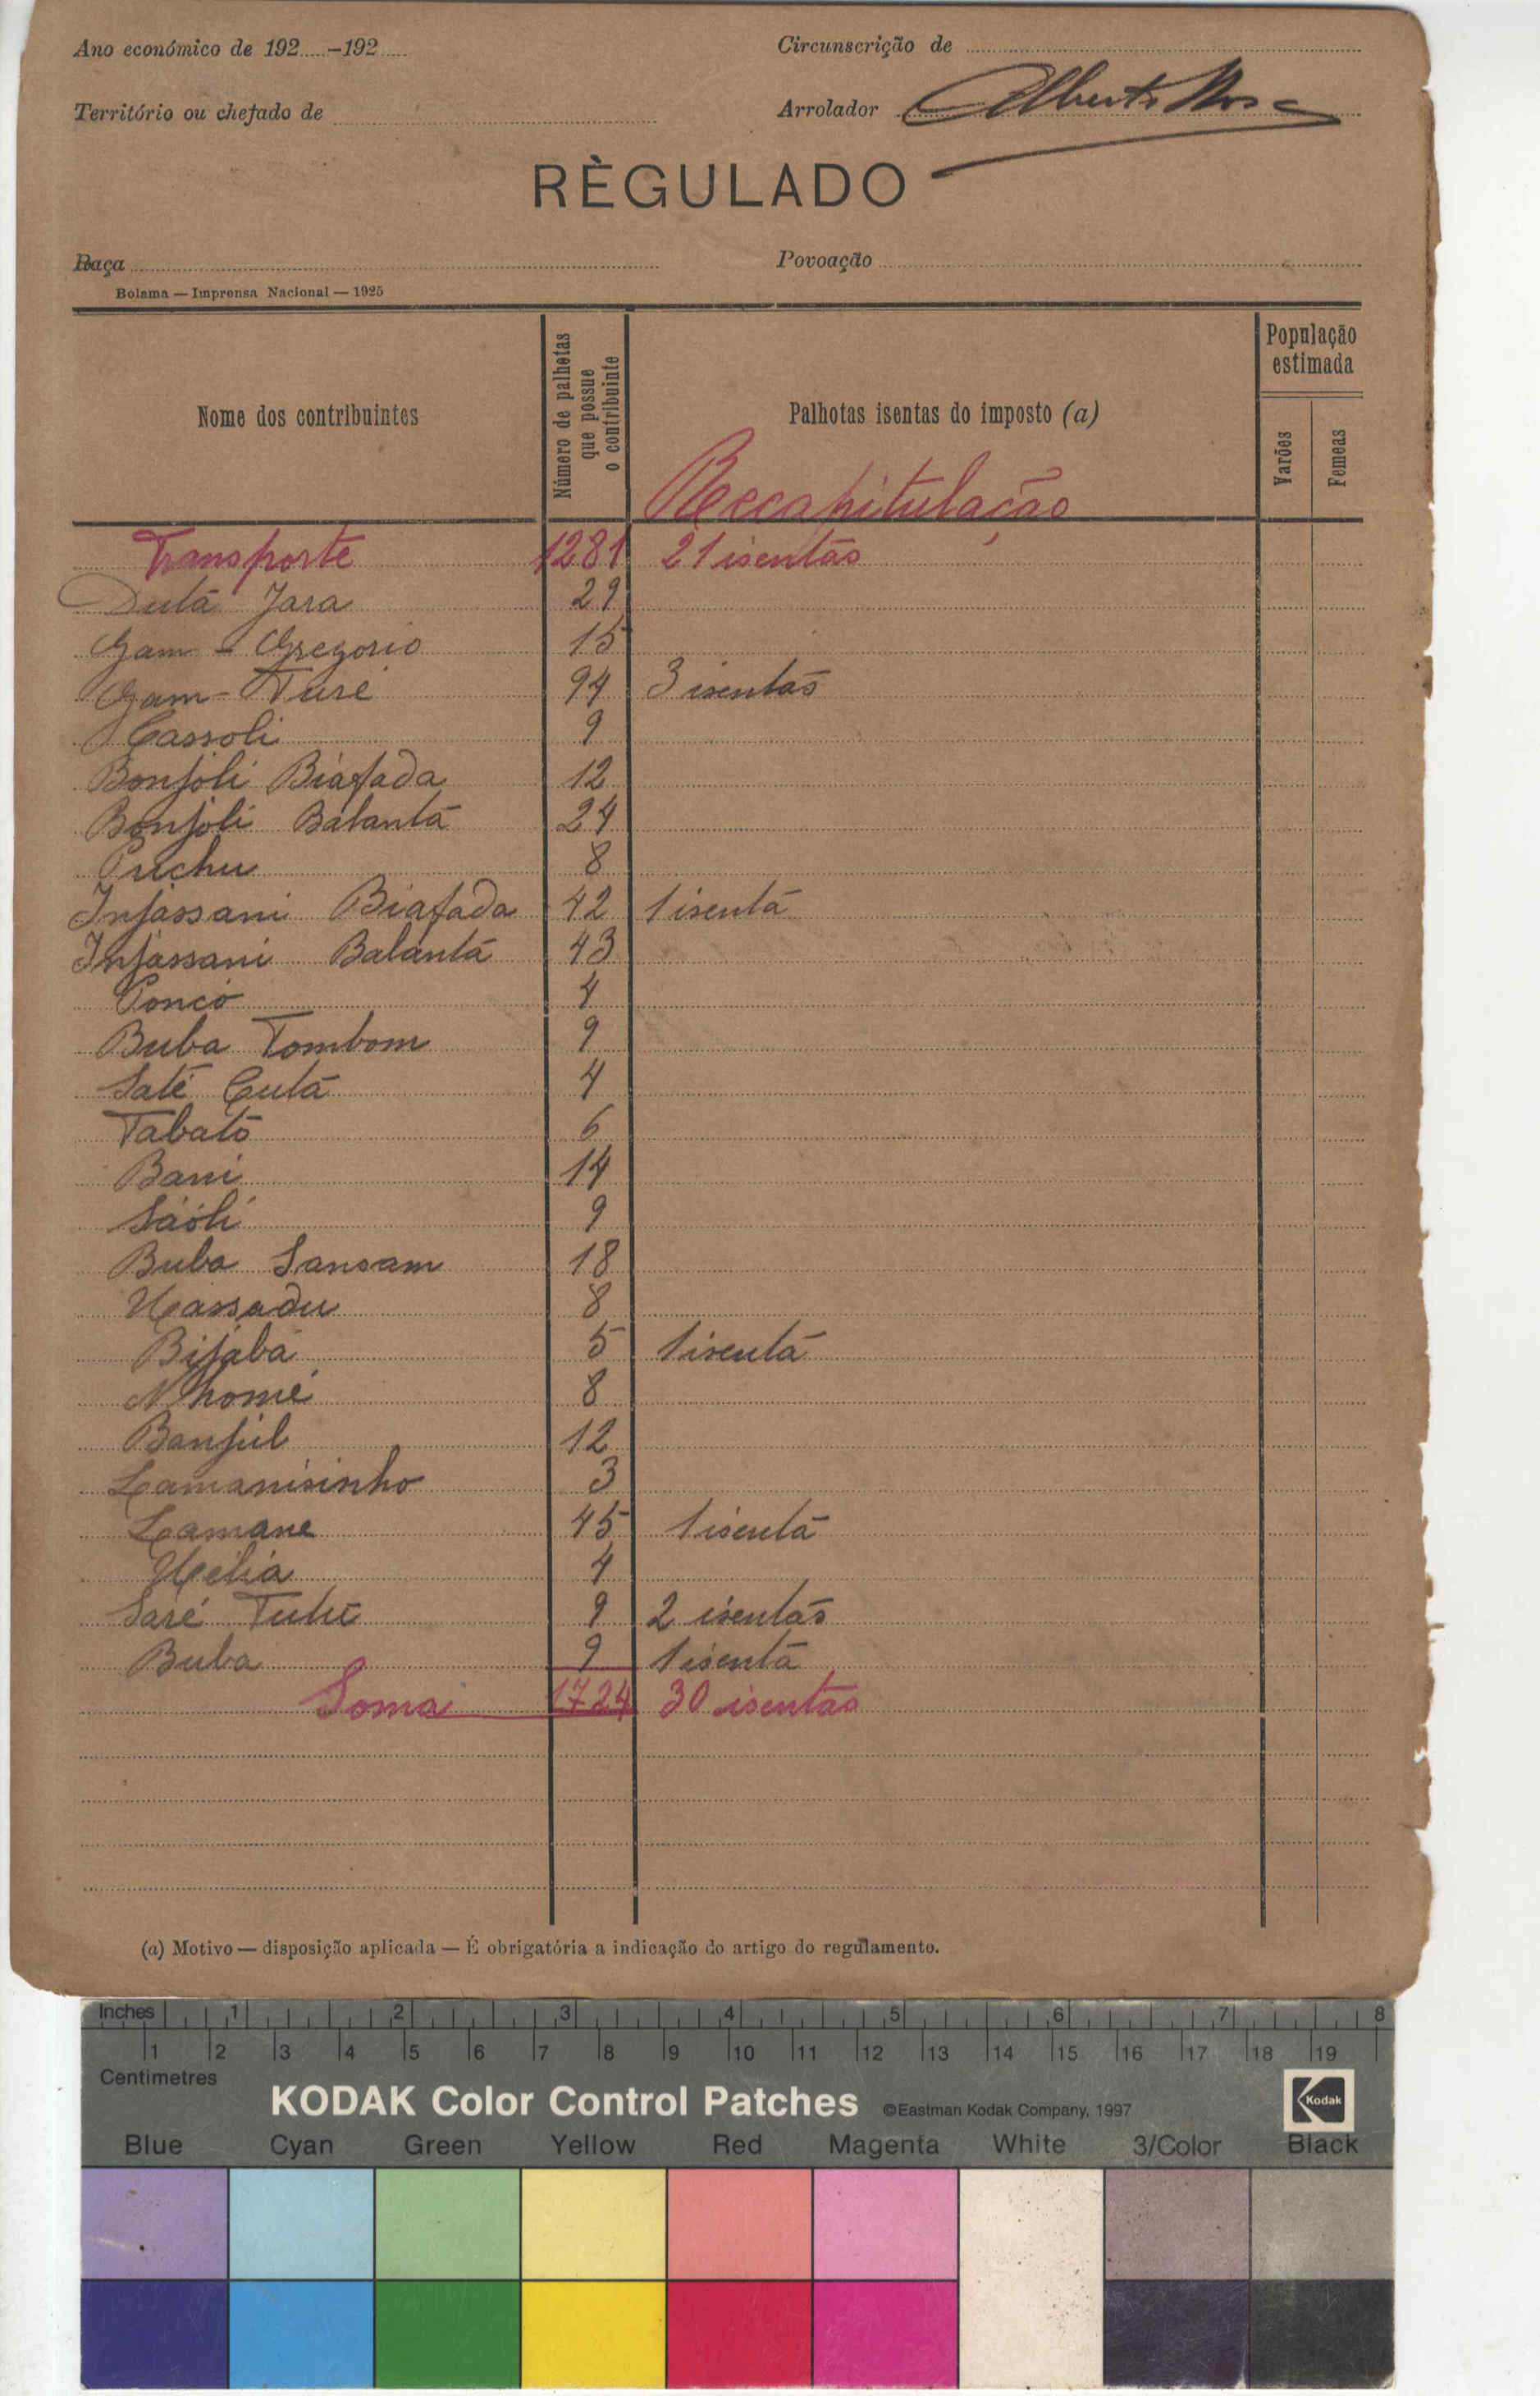 Ano económico de 192.....-192.....
Circunscrição de
Território ou chefado de
Arrolador Alberto
RÈGULADO
Raça
Povoação
Bolama — Imprensa Nacional — 1925
Nome dos contribuintes
Número de palhotas que possue o contribuinte
Palhotas isentas do imposto (a)
População estimada
Varões
Femeas
Recapitulação
Transporte 1281 21 isentas
Dutá Jara 29
Gam - Gregorio 15
Gam - Turé 94 3 isentas
Cassoli 9
Bonjoli Biafada 12
Bonjoli Balanta 24
8
Injassani Biafada 42 1 isenta
Injassani Balanta 43
Poncó 4
Buba Tombom 9
Saté Cutá 4
Tabató 6
Bani 14
Sáóli 9
Buba Sansam 18
8
Bijábá 5 1 isenta
Nhomé 8
Banjul 12
Lamanisinho 3
Lamane 45 1 isenta
4
Saré 9 2 isentas
Buba 9 1 isenta
Soma 1724 30 isentas
(a) Motivo — disposição aplicada — É obrigatória a indicação do artigo do regulamento.
Inches 1 2 3 4 5 6 7 8
1 2 3 4 5 6 7 8 9 10 11 12 13 14 15 16 17 18 19
Centimetres
KODAK Color Control Patches ©Eastman Kodak Company, 1997 Kodak
Blue Cyan Green Yellow Red Magenta White 3/Color Black